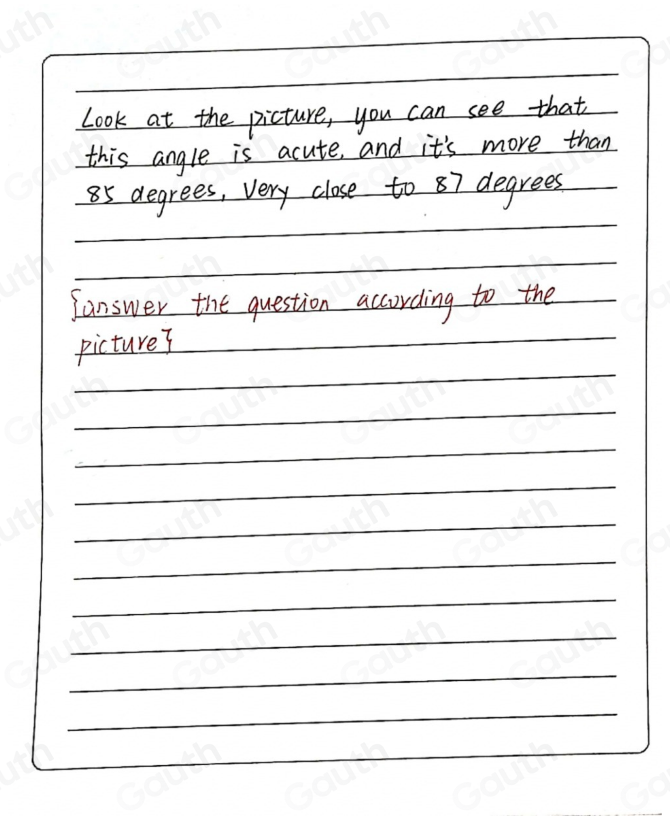 Look at the picture, you can see that
this angle is acute, and it's more than
85 degrees, Very close to 87 degrees
{answer the question according to the
picture}